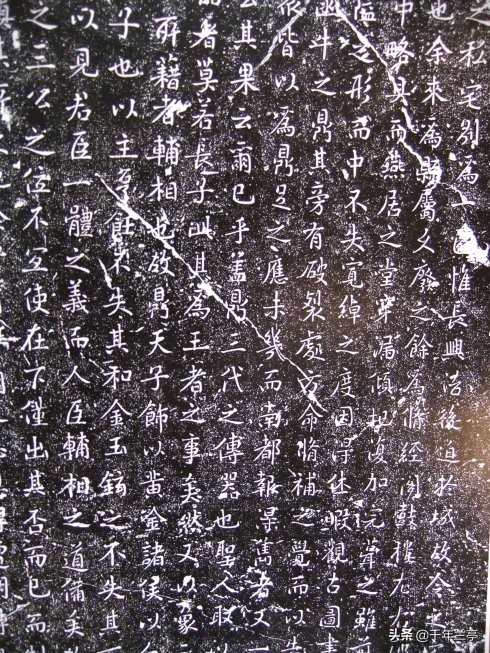 之私宅別為一區惟長興治後迫於城故令之
也余來為縣屬久廢之餘為脩經閣鼓樓尤
中略具而燕居之堂穿漏傾圮復加完葺之雖
隘之形而中不失寬綽之度因得休暇觀古圖書
函牛之鼎其旁有破裂處方命脩補之覺而以
皆以為鼎足之應未幾而南都報景雋者又
其果云爾已乎蓋鼎三代之傳器也聖人取
器者莫若長子此其為王者之事矣然又以象
所藉者輔相也故鼎天子飾以黃金諸侯以
子也以主亨飪不失其和金玉鉉之不失其
以見君臣一體之義而人臣輔相之道備矣
之三公之位不宜使在下僅出其否而已而
头条 @千年兰亭